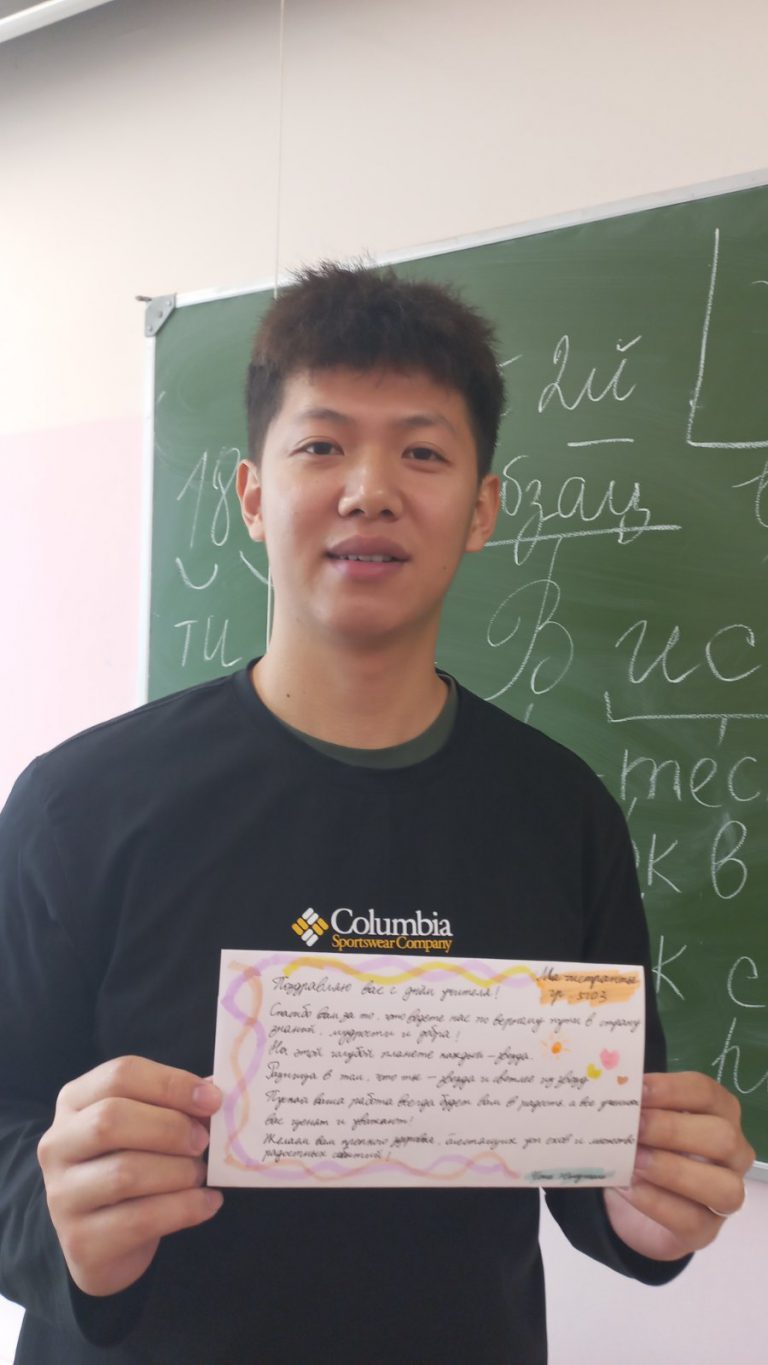 2й
бзац
В ис
ти
тес
к в
к с
Columbia
Sportswear Company
Магистранты
гр. 5103
Поздравляю вас с днём учителя!
Спасибо вам за то, что ведете нас по верному пути в страну
знаний, мудрости и добра!
На этой голубой планете каждый – звезда.
Разница в том, что ты – звезда и светлее из звезд.
Пускай ваша работа всегда будет вам в радость, а все ученики
вас ценят и уважают!
Желаем вам крепкого здоровья, блестящих успехов и множество
радостных событий!